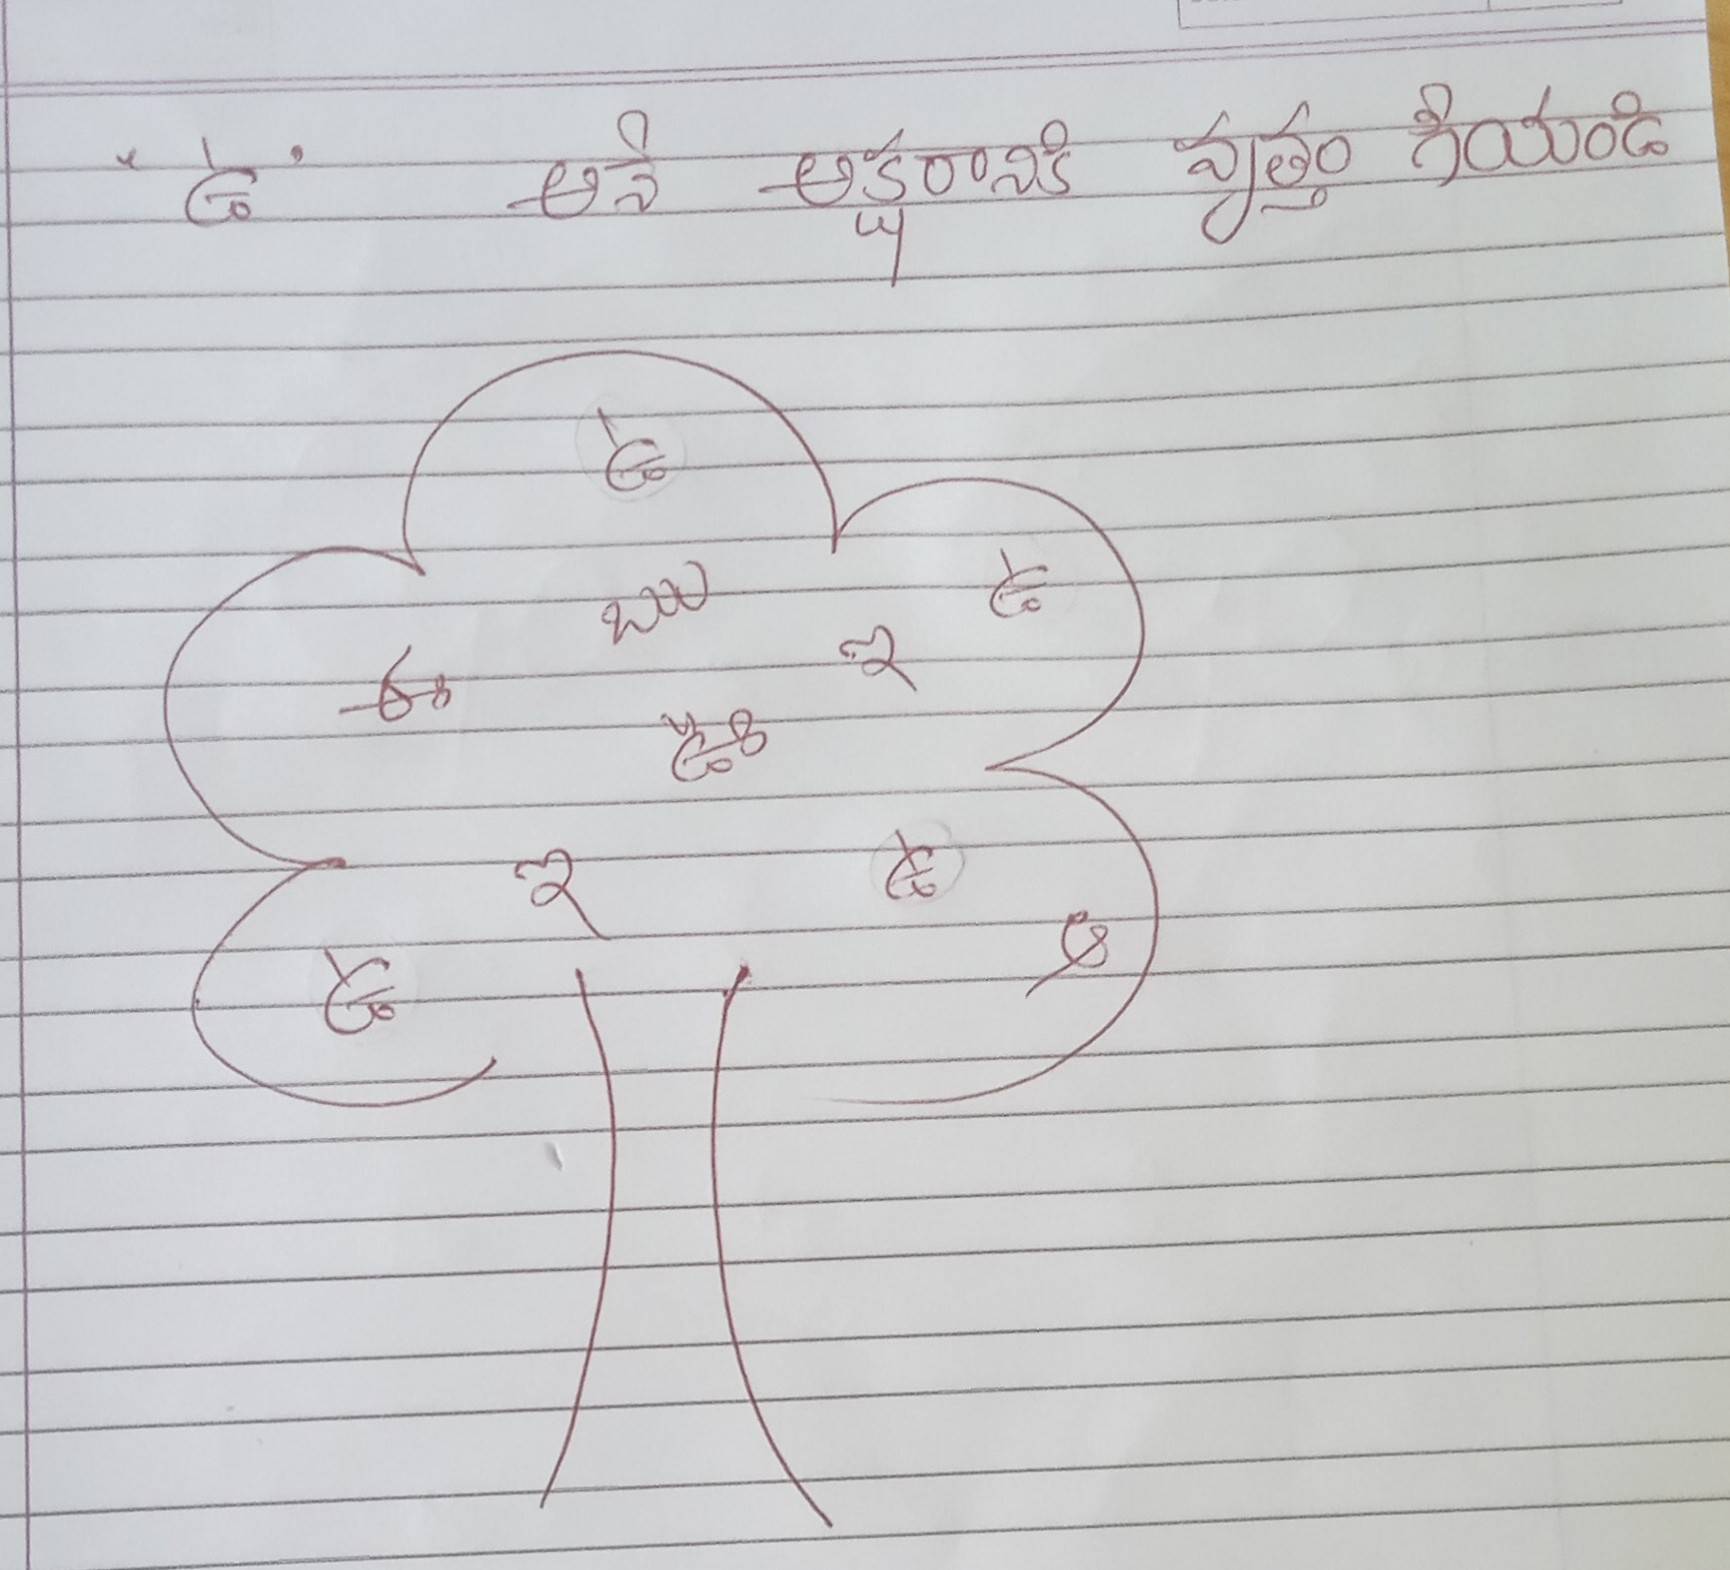 "ఉ" అనే అక్షరానికి వృత్తం గీయండి
ఉ
ఋ ఉ
ఈ ఇ
ఊ
ఇ ఉ
ఉ ఆ